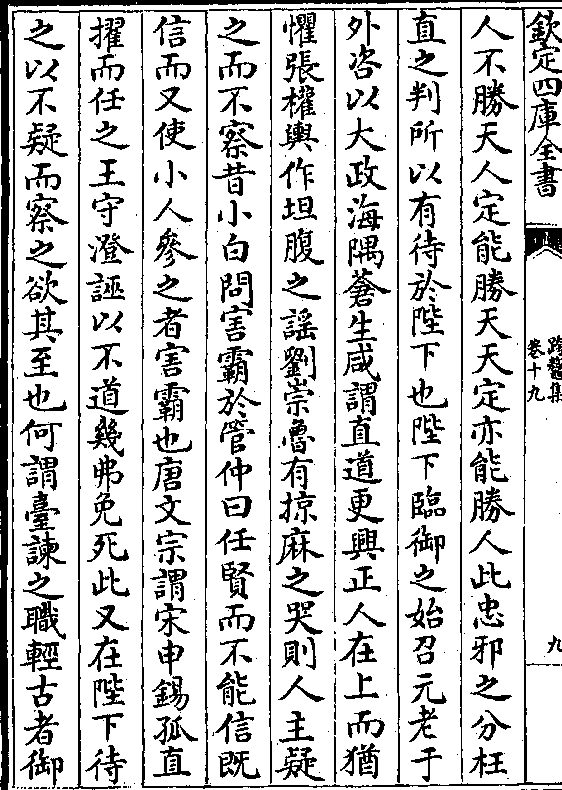 欽定四庫全書
跨鼇集
卷十九
九
人不勝天人定能勝天天定亦能勝人此忠邪之分枉
直之判所以有待於陛下也陛下臨御之始召元老于
外咨以大政海隅蒼生咸謂直道更興正人在上而猶
懼張權輿作坦腹之謡劉崇魯有掠麻之哭則人主疑
之而不察昔小白問害霸於管仲曰任賢而不能信既
信而又使小人參之者害霸也唐文宗謂宋申錫孤直
擢而任之王守澄誣以不道幾弗免死此又在陛下待
之以不疑而察之欲其至也何謂臺諫之職輕古者御